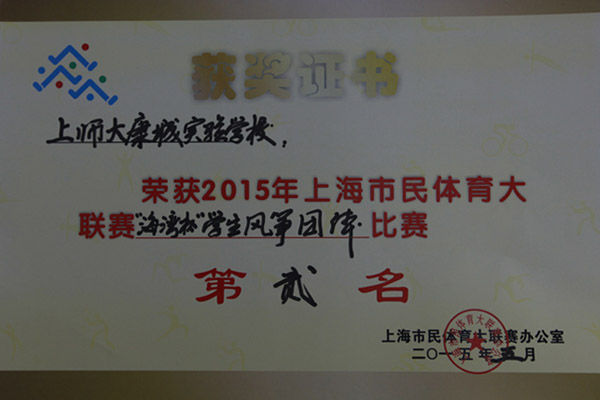 获奖证书
上师大康城实验学校，
荣获2015年上海市民体育大
联赛“海湾杯”学生风筝团体比赛
第贰名
上海市民体育大联赛办公室
二〇一五年五月